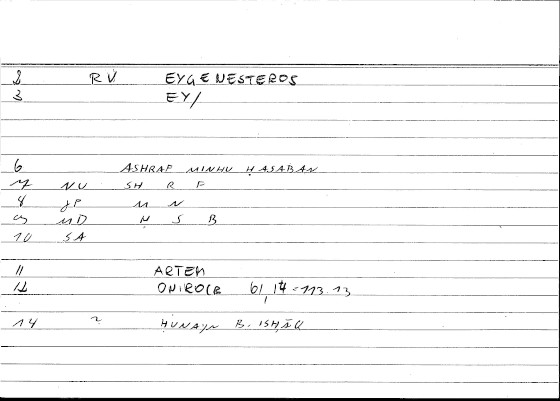 2 RV EYGENESTEROS
3 EY/
6 ASHRAF MINHU ḤASABAN
7 NU SH R F
8 JP M N
9 MD Ḥ S B
10 SA
11 ARTEM
12 ONIROCR 61,14=113.13
14 ~ ḤUNAYN B. ISḤĀQ